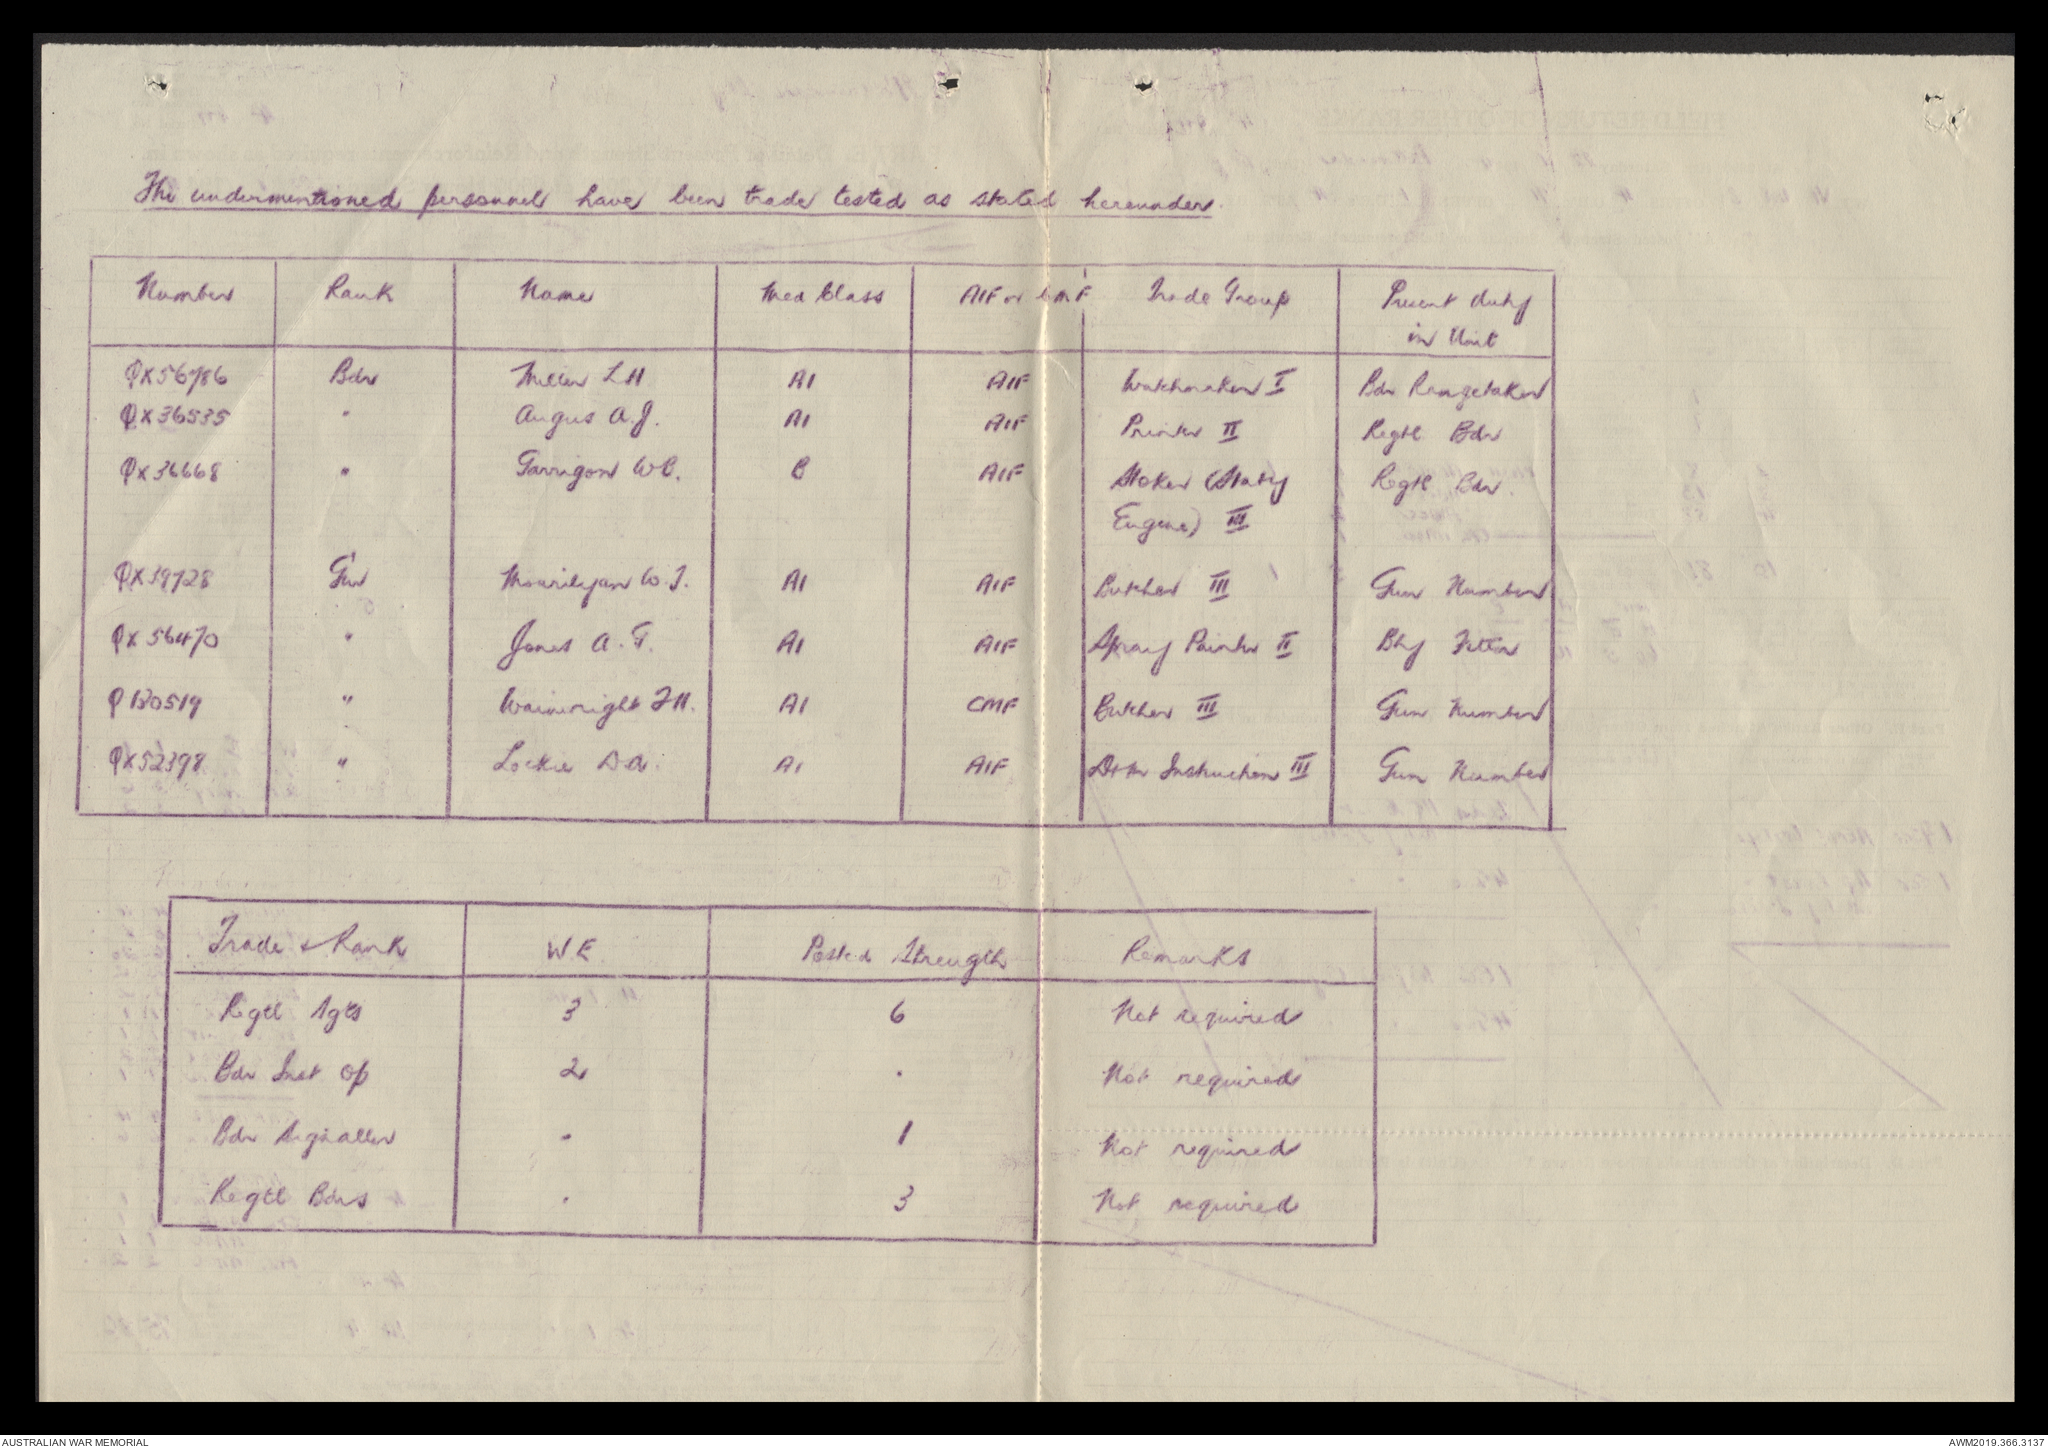 The undermentioned personnel have been trade tested as stated hereunder.
Number Rank Name Med Class AIF or CMF Trade Group Present duty
in Unit
QX56786 Bdr Miller L H A1 AIF Watchmaker I Bdr Rangetaker
QX36535 " Angus A. J. A1 AIF Printer II Regtl Bdr
QX36668 " Garrigon W C. B AIF Stoker (Staty Regtl Bdr
Engine) III
QX39728 Gnr Mourilyan W. J. A1 AIF Butcher III Gun Number
QX56470 " Jones A. G. A1 AIF Spray Painter II Bty Fitter
Q130519 " Wainwright J H. A1 CMF Butcher III Gun Number
QX52398 " Lockie D A. A1 AIF Instruction III Gun Number
Trade & Rank W E Posted Strength Remarks
Regtl Sgts 3 6 Not required
Bdr Inst Op 2 . Not required
Bdr Signaller . 1 Not required
Regtl Bdrs . 3 Not required
AUSTRALIAN WAR MEMORIAL AWM2019.366.3137